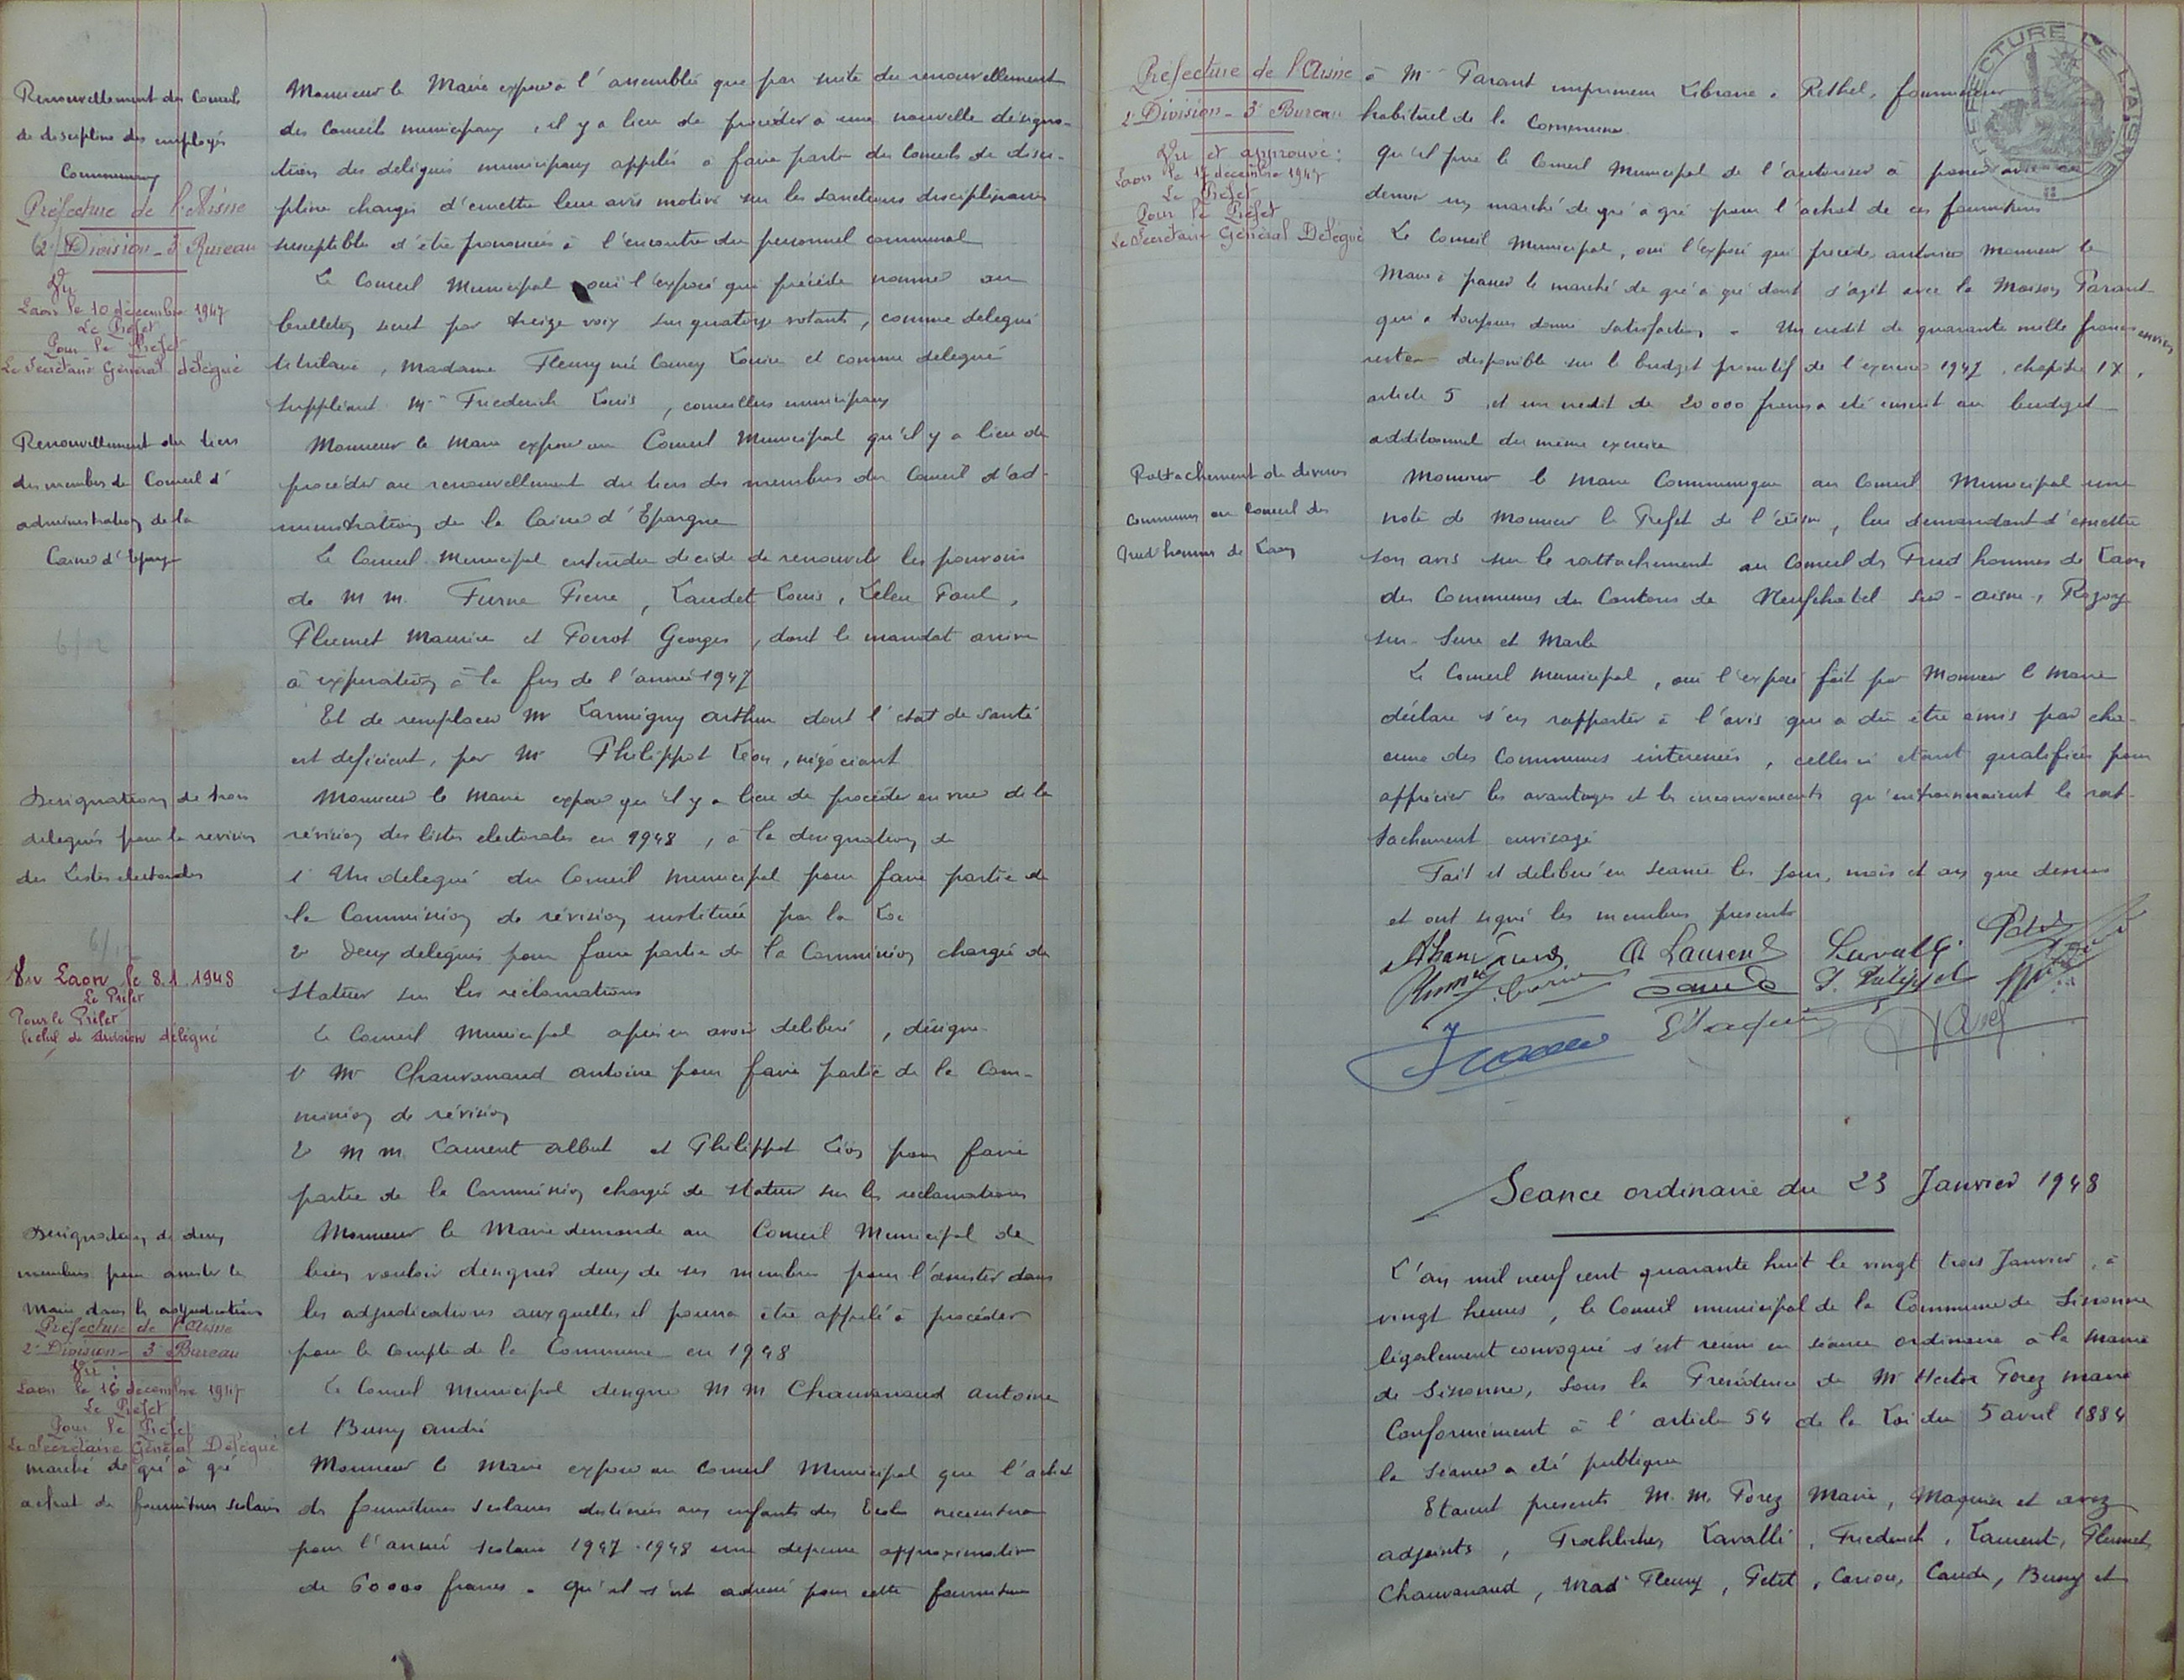 Renouvellement du Conseil
de discipline des employés
Communaux
Préfecture de l'Aisne
2e Division - 3e Bureau
Vu
Laon le 10 décembre 1947
Le Préfet
Pour le Préfet
Le Secrétaire Général délégué
Monsieur le Maire expose à l'assemblée que par suite du renouvellement
des Conseils municipaux, il y a lieu de procéder à une nouvelle désigna-
tion des délégués municipaux appelés à faire partie du Conseil de disci-
pline chargés d'emettre leur avis motivé sur les sanctions disciplinaires
susceptibles d'être prononcées à l'encontre du personnel communal
Le Conseil Municipal oui l'exposé qui précède nomme au
bulletin secret par treize voix sur quatorze votants, comme délégué
titulaire, Madame Fleury née Louise et comme délégué
suppléant Mr Friederich Louis, conseillers municipaux
Renouvellement du tiers
des membres du Conseil d'
administration de la
Caisse d'Epargne
Monsieur le Maire expose au Conseil Municipal qu'il y a lieu de
procéder au renouvellement du tiers des membres du Conseil d'ad-
ministration de la Caisse d'Epargne
Le Conseil Municipal entendu decide de renouveler les pouvoirs
de M M. Furne Pierre, Laudet Louis, Leleu Paul,
Plumet Maurice et Poirot Georges, dont le mandat arrive
à expiration à la fin de l'année 1947
Et de remplacer Mr Larmigny Arthur dont l'état de santé
est deficient, par Mr Philippot Léon, négociant
Designation de trois
delegués pour la revision
des Listes electorales
Vu Laon le 8.1.1948
Le Préfet
Pour le Préfet
le chef de division délégué
Monsieur le Maire expose qu'il y a lieu de procéder en vue de la
révision des listes electorales en 1948, à la designation de
1° Un delegué du Conseil Municipal pour faire partie de
la Commission de révision instituée par la Loi
2° Deux delegués pour faire partie de la Commission chargée de
statuer sur les réclamations
Le Conseil Municipal après en avoir deliberé, désigne
1° Mr Chauvanaud Antoine pour faire partie de la Com-
mission de révision
2° M M. Laurent Albert et Philippot Léon pour faire
partie de la Commission chargée de statuer sur les réclamations
Designation de deux
membres pour assister le
Maire dans les adjudications
Préfecture de l'Aisne
2e Division - 3e Bureau
Vu :
Laon le 16 décembre 1947
Le Préfet
Pour le Préfet
Le Secrétaire Général Délégué
Monsieur le Maire demande au Conseil Municipal de
bien vouloir designer deux de ses membres pour l'assister dans
les adjudications auxquelles il pourra être appelé à procéder
pour le compte de la Commune en 1948
Le Conseil Municipal designe M M Chauvanaud Antoine
et Buny André
marché de gré à gré
achat de fournitures scolaires
Monsieur le Maire expose au Conseil Municipal que l'achat
de fournitures scolaires destinées aux enfants des Ecoles necessitera
pour l'année scolaire 1947-1948 une depense approximative
de 60000 francs. qu'il s'est adressé pour cette fourniture
PREFECTURE DE L'AISNE
Préfecture de l'Aisne
2e Division - 3e Bureau
Vu et approuvé :
Laon le 17 décembre 1947
Le Préfet
Pour le Préfet
Le Secrétaire Général Délégué
à Mr Parant imprimeur Libraire à Rethel, fournisseur
habituel de la Commune
qu'il prie le Conseil Municipal de l'autoriser à passer avec ce
dernier un marché de gré à gré pour l'achat de ces fournitures
Le Conseil Municipal, oui l'exposé qui précède autorise Monsieur le
Maire à passer le marché de gré à gré dont s'agit avec la Maison Parant
qui a toujours donné satisfaction. Un credit de quarante mille francs environ
restera disponible sur le budget primitif de l'exercice 1947, chapitre IX,
article 5, et un credit de 20000 francs a été inscrit au budget
additionnel du même exercice
Rattachement de diverses
communes au Conseil des
Prud'hommes de Laon
Monsieur le Maire Communique au Conseil Municipal une
note de Monsieur le Préfet de l'Aisne, lui demandant d'émettre
son avis sur le rattachement au Conseil des Prud'hommes de Laon
des Communes des Cantons de Neufchatel sur-Aisne, Rozoy
sur-Serre et Marle
Le Conseil Municipal, oui l'exposé fait par Monsieur le Maire
déclare s'en rapporter à l'avis qui a dû être émis par cha-
cune des Communes intéressées, celles ci étant qualifiées pour
apprécier les avantages et les inconvénients qu'entrainnaient le rat-
tachement envisagé
Fait et deliberé en séance les jour, mois et an que dessus
et ont signé les membres présents
A Laurent Lavallé
L. Philippot
Séance ordinaire du 23 Janvier 1948
L'an mil neuf cent quarante huit le vingt trois Janvier, à
vingt heures, le Conseil municipal de la Commune de Sissonne
légalement convoqué s'est réuni en séance ordinaire à la Mairie
de Sissonne, sous la Présidence de Mr Hector Porez maire
Conformément à l'article 54 de la Loi du 5 avril 1884
la Séance a été publique
Etaient présents M. M. Porez Maire, Maquin et
adjoints, Froehlicher, Lavallé, Friederich, Laurent, Plumet,
Chauvanaud, Made Fleury, Petit, Cariou, Caude, Buny et